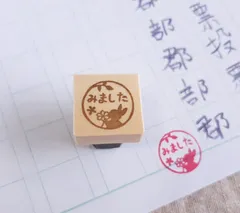 票投
郡部郡部郡
みました
みました